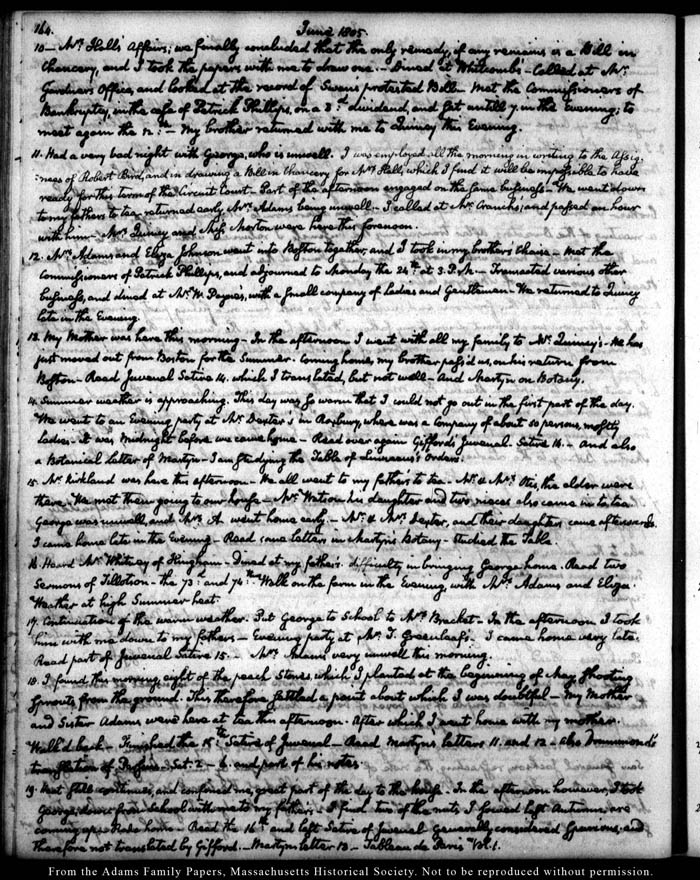 164.
June 1805.
10— Mr. Hall's Affairs; we finally concluded that the only remedy, if any remains is a Bill in
Chancery, and I took the papers with me to draw one— Dined at Whitcomb's— Called at Mr.
Gardner's Office, and looked at the record of Swan's protested Bills. Met the Commissioners of
Bankruptcy, in the case of Patrick Phillips, on a 3d. dividend, and sat untill 7. in the Evening; to
meet again the 12.:— My brother returned with me to Quincy this Evening.
11. Had a very bad night with George, who is unwell. I was employed all the morning in writing to the Assig-
nees of Robert Bird, and in drawing a Bill in Chancery for Mr. Hall, which I find it will be impossible to have
ready for this term of the Circuit Court. Part of the afternoon engaged on the same business. We went down
to my father's to tea, returned early, Mrs. Adams being unwell— I called at Mr. Cranch's, and passed an hour
with him— Mrs. Quincy and Miss Morton were here this forenoon.
12. Mrs. Adams and Eliza Johnson went into Boston together, and I took in my brother's Chaise— Met the
Commissioners of Patrick Phillips, and adjourned to Monday the 24th. at 3. P.M.— Transacted various other
business, and dined at Mr. W. Payne's, with a small company of Ladies and Gentlemen— We returned to Quincy
late in the Evening.
13. My Mother was here this morning— In the afternoon I went with all my family to Mr. Quincy's— He has
just moved out from Boston for the Summer. Coming home, my brother pass'd us, on his return from
Boston— Read Juvenal Satire 14. which I translated, but not well— And Martyn on Botany.
14. Summer weather is approaching. This day was so warm that I could not go out in the first part of the day.
We went to an Evening party at Mr. Dexter's in Roxbury, where was a Company of about 50 persons, mostly
Ladies. It was Midnight before we came home— Read over again Gifford's Juvenal. Satire 14.— And also
a Botanical Letter of Martyn— I am studying the Table of Linnaeus's Orders.
15. Mr. Kirkland was here this afternoon— We all went to my father's to tea— Mr. & Mrs. Otis, the elder were
there. We met them going to our house— Mr. Watson his daughter and two nieces also came in to tea.
George was unwell, and Mrs. A. went home early— Mr. & Mrs. Dexter, and their daughter came afterwards.
I came home late in the Evening— Read some letters in Martyn's Botany— Studied the Table.
16. Heard Mr. Whitney of Hingham— Dined at my father's. difficulty in bringing George home. Read two
Sermons of Tillotson— the 73d. and 74th. Walk on the farm in the Evening, with Mrs. Adams and Eliza.
Weather at high Summer heat.
17. Continuation of the warm weather. Put George to School to Mrs. Bracket— In the afternoon I took
him with me down to my father's— Evening party at Mr. T. Greenleaf's. I came home very late.
Read part of Juvenal Satire 15.— Mrs. Adams very unwell this morning.
18. I found, this morning, eight of the peach Stones, which I planted at the beginning of May, shooting
sprouts from the ground. This therefore, settled a point about which I was doubtful— My Mother
and Sister Adams were here at tea this afternoon. After which I went home with my mother.
Walk'd back— Finished the 15th. Satire of Juvenal— Read Martyn's letters 11. and 12.— also Drummond's
translation of Persius— Sat: 2— 6. and part of his notes.
19. Heat still continues, and confined me, great part of the day to the house. In the afternoon however, I took
George down from School with me to my father's— I find ten of the nuts I sowed last Autumn, are
coming up— Rode home— Read the 16th. and last Satire of Juvenal Generally considered spurious, and
therefore not translated by Gifford.— Martyn's letter 13.— Tableau de Paris Vol. 1.
From the Adams Family Papers, Massachusetts Historical Society. Not to be reproduced without permission.